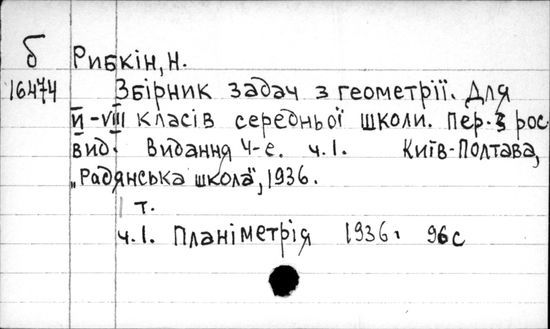 б Рибкін, Н.
16474 Збірник задач з геометрії. Для
VI-VIII класів середньої школи. Пер. з рос
вид. Видання 4-е. ч.1. Київ-Полтава,
„Радянська школа", 1936.
1 т.
ч.1. Планіметрія 1936. 96с